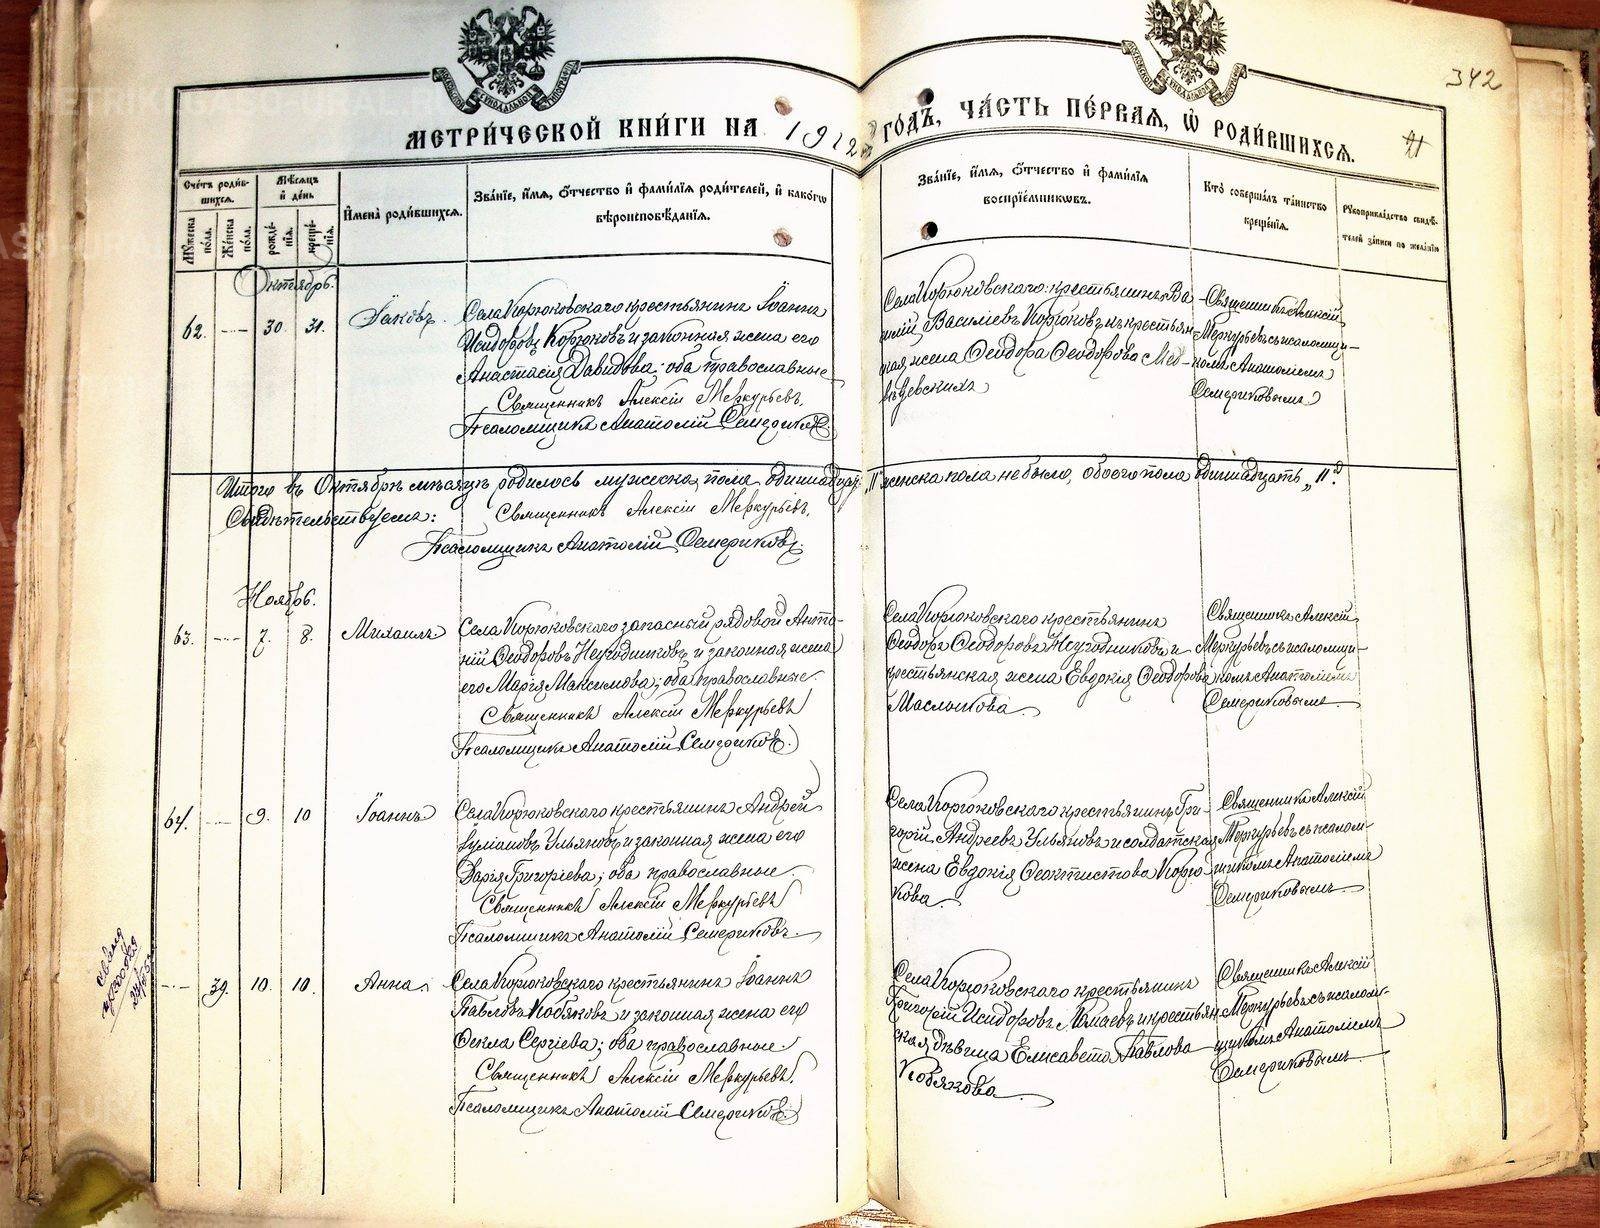 342
МЕТРИ́ЧЕСКОЙ КНИ́ГИ НА 1912 ГО́ДЪ, ЧА́СТЬ ПЕ́РВАЯ, Ѡ РОДИ́ВШИХСЯ.
Сче́тъ роди́в-
шихся.
Мѣ́сяцъ
и де́нь
Му́жеска
по́ла.
Же́нска
по́ла.
рожде́-
нія.
креще́-
нія.
Имена̀ роди́вшихся.
Зва́ніе, и́мя, ѻ́тчество и фами́лія роди́телей, и како́гѡ
вѣроисповѣ́данія.
Зва́ніе, и́мя, ѻ́тчество и фами́лія
воспріе́мниковъ.
Кто̀ соверша́лъ та́инство
креще́нія.
Рꙋкоприкла́дство свидѣ́-
телей за́писи по жела́нію
Октябрь.
62. — 30. 31. Іаковъ.
Села Корюковскаго крестьянинъ Іоаннъ
Исидоровъ Корюковъ и законная жена его
Анастасія Давидова; оба православные
Священникъ Алексій Меркурьевъ.
Псаломщикъ Анатолій Семериковъ.
Села Корюковскаго: крестьянинъ Ва-
силій Васильевъ Корюковъ и крестьян-
ская жена Ѳеодора Ѳеодорова
Священникъ Алексій
Меркурьевъ съ псаломщи-
комъ Анатоліемъ
Семериковымъ
Итого въ Октябрѣ мѣсяцѣ родилось мужеска пола одиннадцать „11“ женска пола не было, обоего пола одиннадцать „11“.
Свидѣтельствуемъ: Священникъ Алексій Меркурьевъ.
Псаломщикъ Анатолій Семериковъ.
Ноябрь.
63. — 7. 8. Михаилъ
Села Корюковскаго запасный рядовой Анто-
ній Ѳеодоровъ Неугодниковъ и законная жена
его Марія Максимова; оба православные
Священникъ Алексій Меркурьевъ
Псаломщикъ Анатолій Семериковъ.
Села Корюковскаго крестьянинъ
Ѳеодоръ Ѳеодоровъ Неугодниковъ и
крестьянская жена Евдокія Ѳеодорова
Маслыкова
Священникъ Алексій
Меркурьевъ съ псаломщи-
комъ Анатоліемъ
Семериковымъ
64. — 9. 10 Іоаннъ
Села Корюковскаго крестьянинъ Андрей
Іуліановъ Ульяновъ и законная жена его
Дарія Григоріева; оба православные.
Священникъ Алексій Меркурьевъ
Псаломщикъ Анатолій Семериковъ
Села Корюковскаго крестьянинъ Гри-
горій Андреевъ Ульяновъ и солдатская
жена Евдокія Ѳеоктистова Корю-
кова.
Священникъ Алексій
Меркурьевъ съ псалом-
щикомъ Анатоліемъ
Семериковымъ
— 39. 10. 10. Анна
Села Корюковскаго крестьянинъ Іоаннъ
Павловъ Кобяковъ и законная жена его
Ѳекла Сергіева; оба православные.
Священникъ Алексій Меркурьевъ.
Псаломщикъ Анатолій Семериковъ.
Села Корюковскаго крестьянинъ
Григорій Исидоровъ и крестьян-
ская дѣвица Елисавета Павлова
Кобякова
Священникъ Алексій
Меркурьевъ съ псалом-
щикомъ Анатоліемъ
Семериковымъ